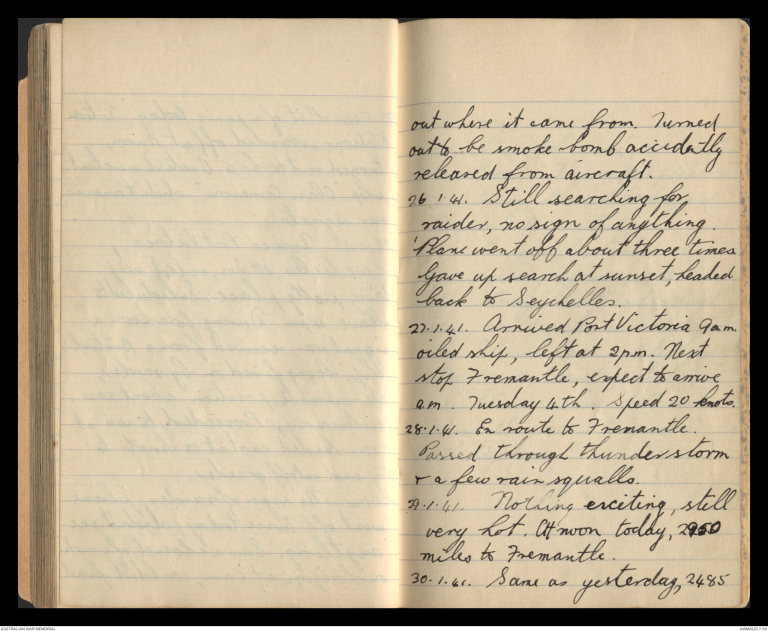 out where it came from. Turned
out to be smoke bomb accidently
released from aircraft.
26.1.41. Still searching for
raider, no sign of anything.
Plane went off about three times
Gave up search at sunset, headed
back to Seychelles.
27.1.41. Arrived Port Victoria 9am.
oiled ship, left at 2pm. Next
stop Fremantle, expect to arrive
a.m. Tuesday 4th. Speed 20 knots.
28.1.41. En route to Fremantle.
Passed through thunderstorm
& a few rain squalls.
29.1.41. Nothing exciting, still
very hot. At noon today, 2950
miles to Fremantle.
30.1.41. Same as yesterday, 2485
AUSTRALIAN WAR MEMORIAL